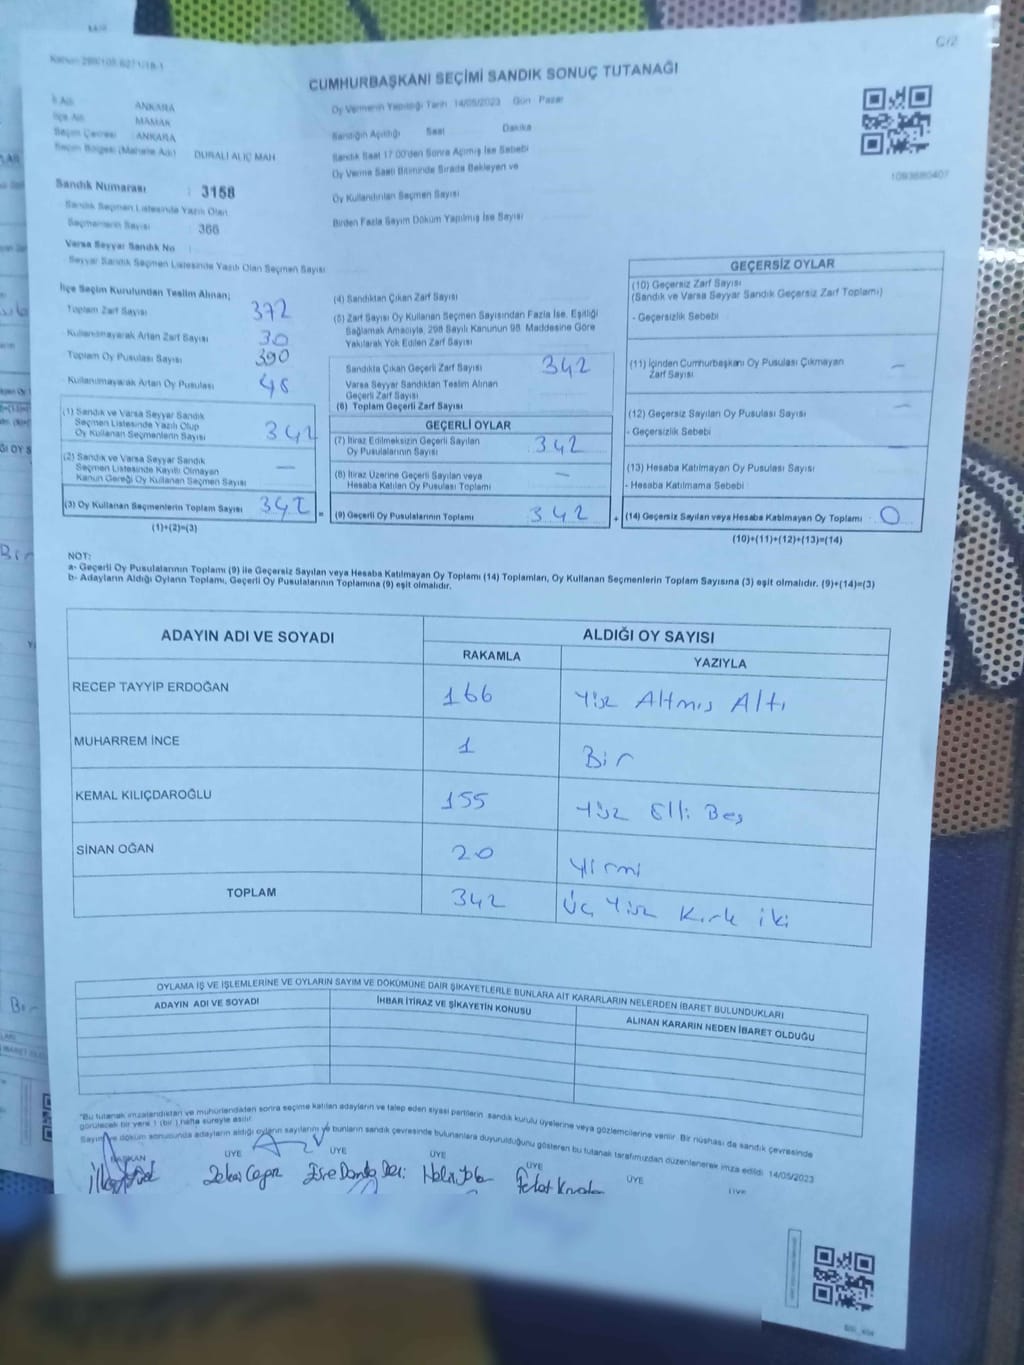 C/2
CUMHURBAŞKANI SEÇİMİ SANDIK SONUÇ TUTANAĞI
İl Adı ANKARA
İlçe Adı MAMAK
Seçim Çevresi : ANKARA
Seçim Bölgesi (Mahalle Adı) DURALİ ALIÇ MAH
Sandık Numarası : 3158
Sandık Seçmen Listesinde Yazılı Olan
Seçmenlerin Sayısı : 366
Varsa Seyyar Sandık No
Seyyar Sandık Seçmen Listesinde Yazılı Olan Seçmen Sayısı
Oy Vermenin Yapıldığı Tarih 14/05/2023 Gün Pazar
Sandığın Açıldığı Saat Dakika
Sandık Saat 17.00'den Sonra Açılmış İse Sebebi
Oy Verme Saati Bitiminde Sırada Bekleyen ve
Oy Kullandırılan Seçmen Sayısı
Birden Fazla Sayım Döküm Yapılmış İse Sayısı
1093680407
İlçe Seçim Kurulundan Teslim Alınan;
Toplam Zarf Sayısı 372
Kullanılmayarak Artan Zarf Sayısı 30
Toplam Oy Pusulası Sayısı 390
Kullanılmayarak Artan Oy Pusulası 48
(1) Sandık ve Varsa Seyyar Sandık
Seçmen Listesinde Yazılı Olup
Oy Kullanan Seçmenlerin Sayısı 342
(2) Sandık ve Varsa Seyyar Sandık
Seçmen Listesinde Kayıtlı Olmayan
Kanun Gereği Oy Kullanan Seçmen Sayısı —
(3) Oy Kullanan Seçmenlerin Toplam Sayısı 342 =
(1)+(2)=(3)
(4) Sandıktan Çıkan Zarf Sayısı
(5) Zarf Sayısı Oy Kullanan Seçmen Sayısından Fazla İse, Eşitliği
Sağlamak Amacıyla, 298 Sayılı Kanunun 98. Maddesine Göre
Yakılarak Yok Edilen Zarf Sayısı
Sandıkta Çıkan Geçerli Zarf Sayısı 342
Varsa Seyyar Sandıktan Teslim Alınan
Geçerli Zarf Sayısı
(6) Toplam Geçerli Zarf Sayısı
GEÇERLİ OYLAR
(7) İtiraz Edilmeksizin Geçerli Sayılan
Oy Pusulalarının Sayısı 342
(8) İtiraz Üzerine Geçerli Sayılan veya
Hesaba Katılan Oy Pusulası Toplamı —
(9) Geçerli Oy Pusulalarının Toplamı 342 +
GEÇERSİZ OYLAR
(10) Geçersiz Zarf Sayısı
(Sandık ve Varsa Seyyar Sandık Geçersiz Zarf Toplamı)
- Geçersizlik Sebebi
(11) İçinden Cumhurbaşkanı Oy Pusulası Çıkmayan
Zarf Sayısı —
(12) Geçersiz Sayılan Oy Pusulası Sayısı —
- Geçersizlik Sebebi
(13) Hesaba Katılmayan Oy Pusulası Sayısı —
- Hesaba Katılmama Sebebi
(14) Geçersiz Sayılan veya Hesaba Katılmayan Oy Toplamı 0
(10)+(11)+(12)+(13)=(14)
NOT:
a- Geçerli Oy Pusulalarının Toplamı (9) ile Geçersiz Sayılan veya Hesaba Katılmayan Oy Toplamı (14) Toplamları, Oy Kullanan Seçmenlerin Toplam Sayısına (3) eşit olmalıdır. (9)+(14)=(3)
b- Adayların Aldığı Oyların Toplamı, Geçerli Oy Pusulalarının Toplamına (9) eşit olmalıdır.
ADAYIN ADI VE SOYADI ALDIĞI OY SAYISI
RAKAMLA YAZIYLA
RECEP TAYYİP ERDOĞAN 166 Yüz Altmış Altı
MUHARREM İNCE 1 Bir
KEMAL KILIÇDAROĞLU 155 Yüz Elli Beş
SİNAN OĞAN 20 Yirmi
TOPLAM 342 Üç Yüz Kırk iki
OYLAMA İŞ VE İŞLEMLERİNE VE OYLARIN SAYIM VE DÖKÜMÜNE DAİR ŞİKAYETLERLE BUNLARA AİT KARARLARIN NELERDEN İBARET BULUNDUKLARI
ADAYIN ADI VE SOYADI İHBAR İTİRAZ VE ŞİKAYETİN KONUSU ALINAN KARARIN NEDEN İBARET OLDUĞU
"Bu tutanak imzalandıktan ve mühürlendikten sonra seçime katılan adayların ve talep eden siyasi partilerin sandık kurulu üyelerine veya gözlemcilerine verilir. Bir nüshası da sandık çevresinde
görülecek bir yere 1 (bir) hafta süreyle asılır.
Sayım ve döküm sonusunda adayların aldığı oyların sayılarını ve bunların sandık çevresinde bulunanlara duyurulduğunu gösteren bu tutanak tarafımızdan düzenlenerek imza edildi. 14/05/2023
BAŞKAN ÜYE ÜYE ÜYE ÜYE ÜYE ÜYE